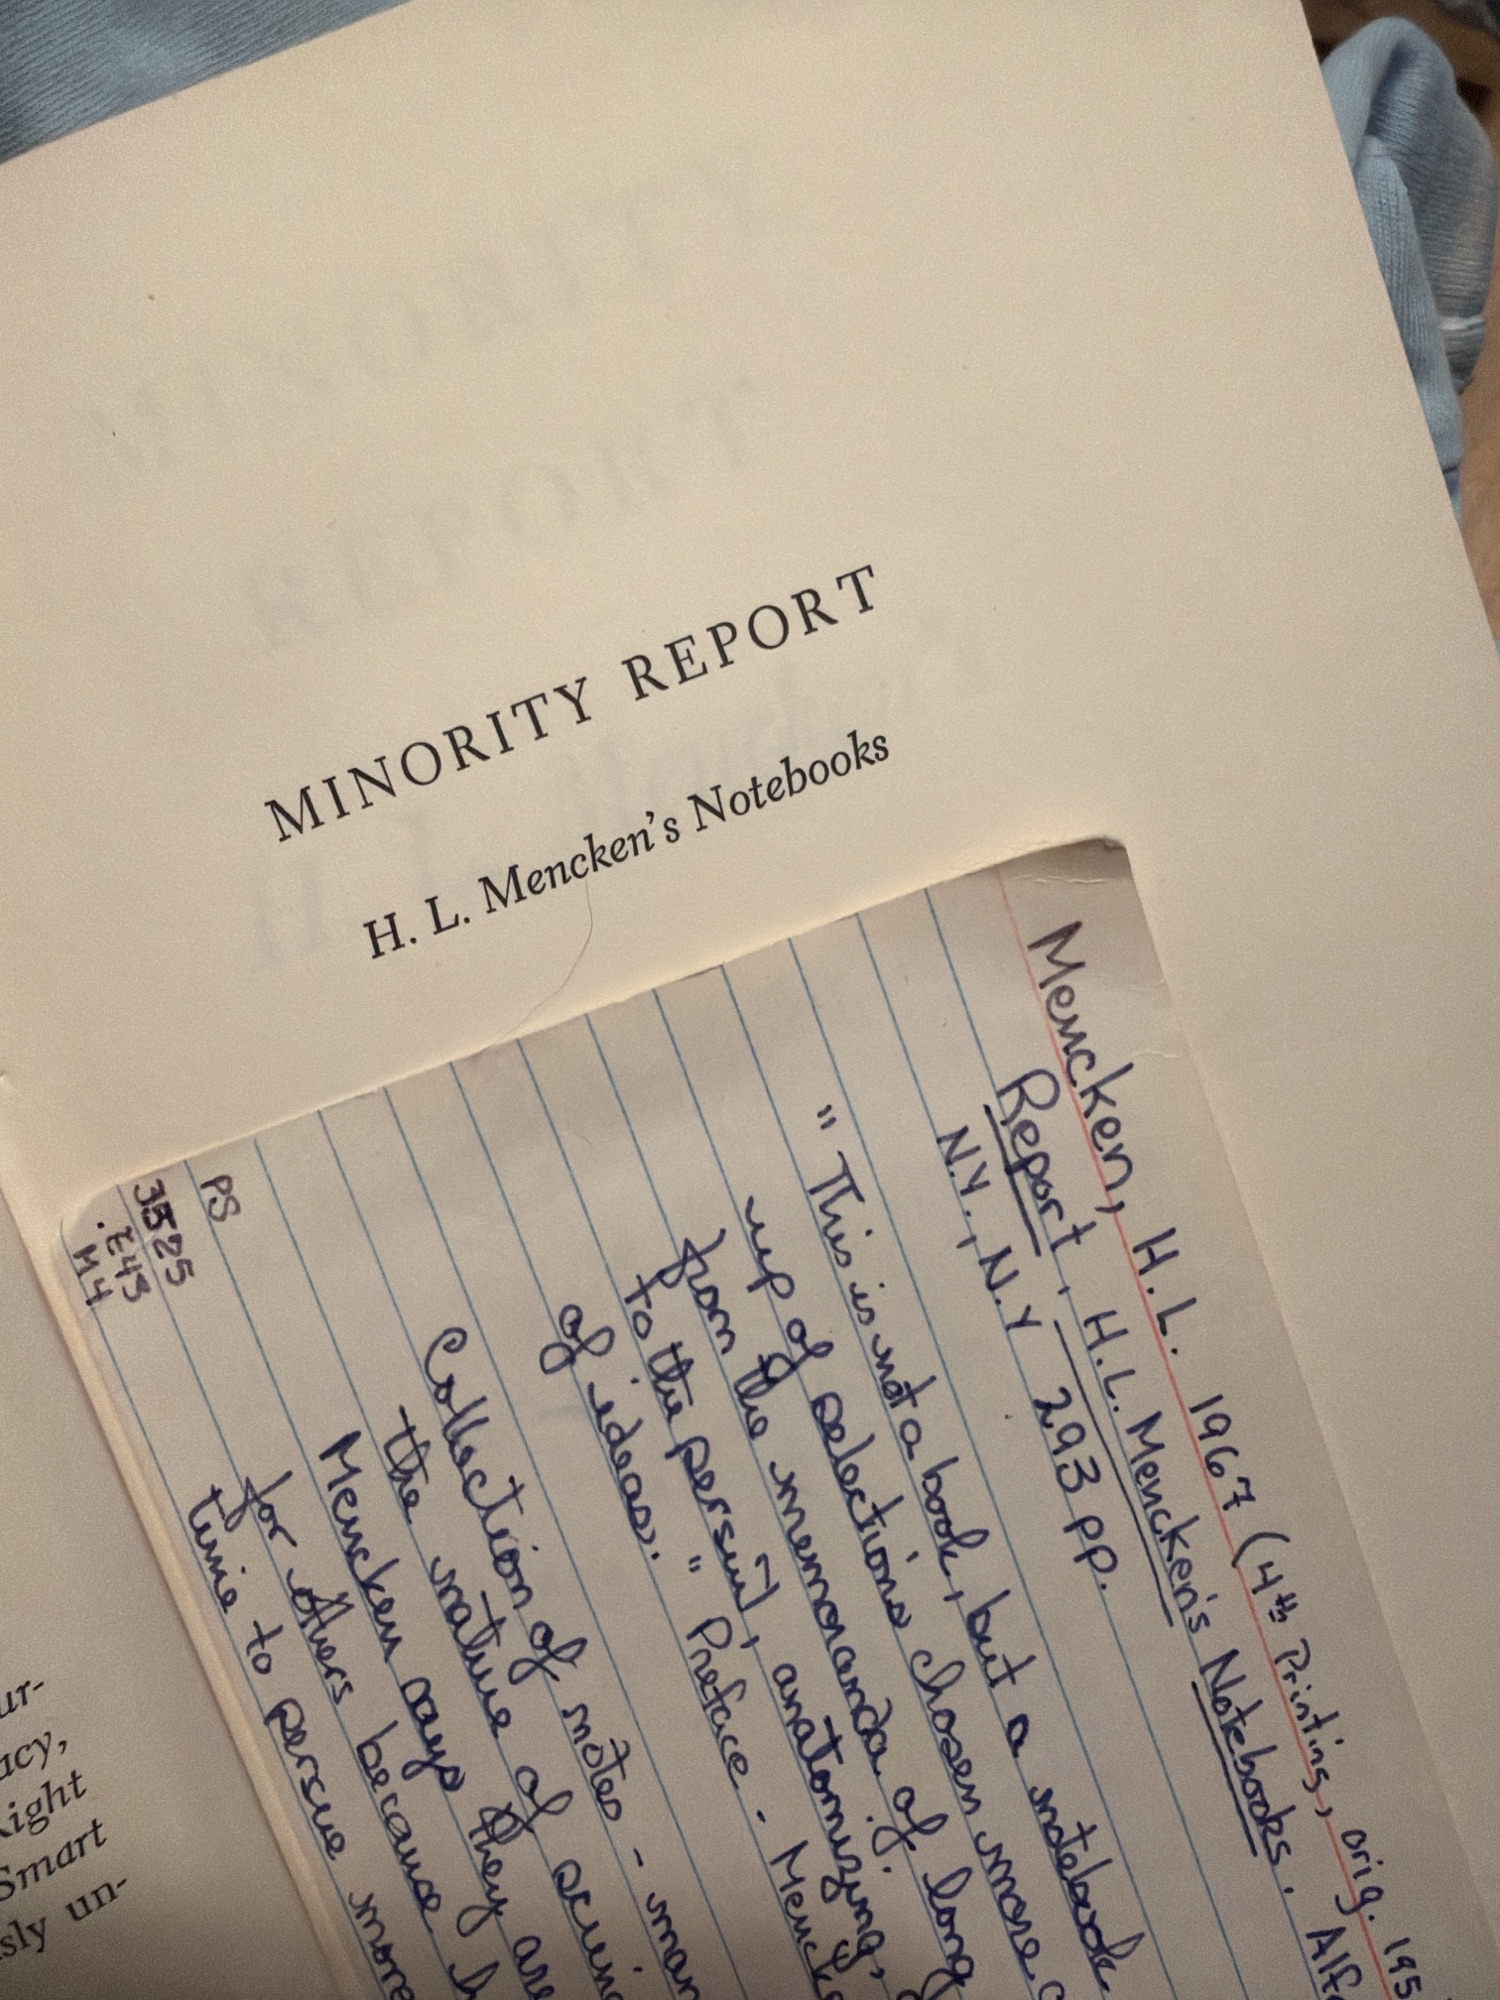 MINORITY REPORT
H. L. Mencken's Notebooks
Mencken, H. L. 1967 (4th Printing, orig. 195
Report, H.L. Mencken's Notebooks. Alf
N.Y., N.Y 293 pp.
" This is not a book, but a notebook
up of selections chosen more
from the memoranda of long
to the persuit, anatomizing,
of ideas. " Preface - Mencke
Collection of notes - man
the nature of
Mencken says they are
for others because h
time to persue more
PS
3525
.E43
M4
ur-
acy,
Right
Smart
sly un-